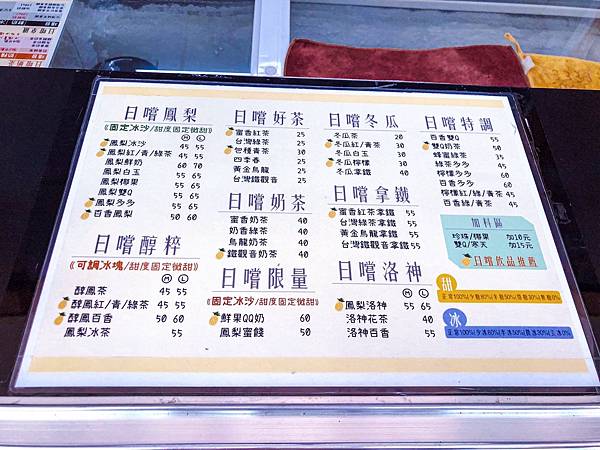 日嚐鳳梨
《固定冰沙/甜度固定微甜》
M L
鳳梨冰沙 45 55
鳳梨紅/青/綠茶 45 55
鳳梨鮮奶 60 70
鳳梨白玉 55 65
鳳梨椰果 55 65
鳳梨雙Q 55 65
鳳梨多多 55 65
百香鳳梨 50 60
日嚐醇粹
《可調冰塊/甜度固定微甜》
M L
醇鳳茶 45 55
醇鳳紅/青/綠茶 45 55
醇鳳百香 50 60
鳳梨冰茶 55
日嚐好茶
蜜香紅茶 25
台灣綠茶 25
包種青茶 30
四季春 25
黃金烏龍 25
台灣鐵觀音 25
日嚐奶茶
蜜香奶茶 40
奶香綠茶 40
烏龍奶茶 40
鐵觀音奶茶 45
日嚐限量
《固定冰沙/甜度固定微甜》
L
鮮果QQ奶 60
鳳梨蜜餞 50
日嚐冬瓜
冬瓜茶 20
冬瓜紅/青茶 30
冬瓜白玉 30
冬瓜檸檬 30
冬瓜拿鐵 40
日嚐拿鐵
蜜香紅茶拿鐵 55
台灣綠茶拿鐵 55
黃金烏龍拿鐵 55
台灣鐵觀音拿鐵 55
日嚐洛神
M L
鳳梨洛神 55 65
洛神花茶 40
洛神百香 55
日嚐特調
百香雙Q 55
雙Q奶茶 50
蜂蜜綠茶 35
綠茶多多 45
檸檬多多 60
百香多多 60
檸檬紅/綠/青茶 45
百香綠/青茶 45
加料區
珍珠/椰果 加10元
雙Q/寒天 加15元
日嚐飲品推薦
甜
冰